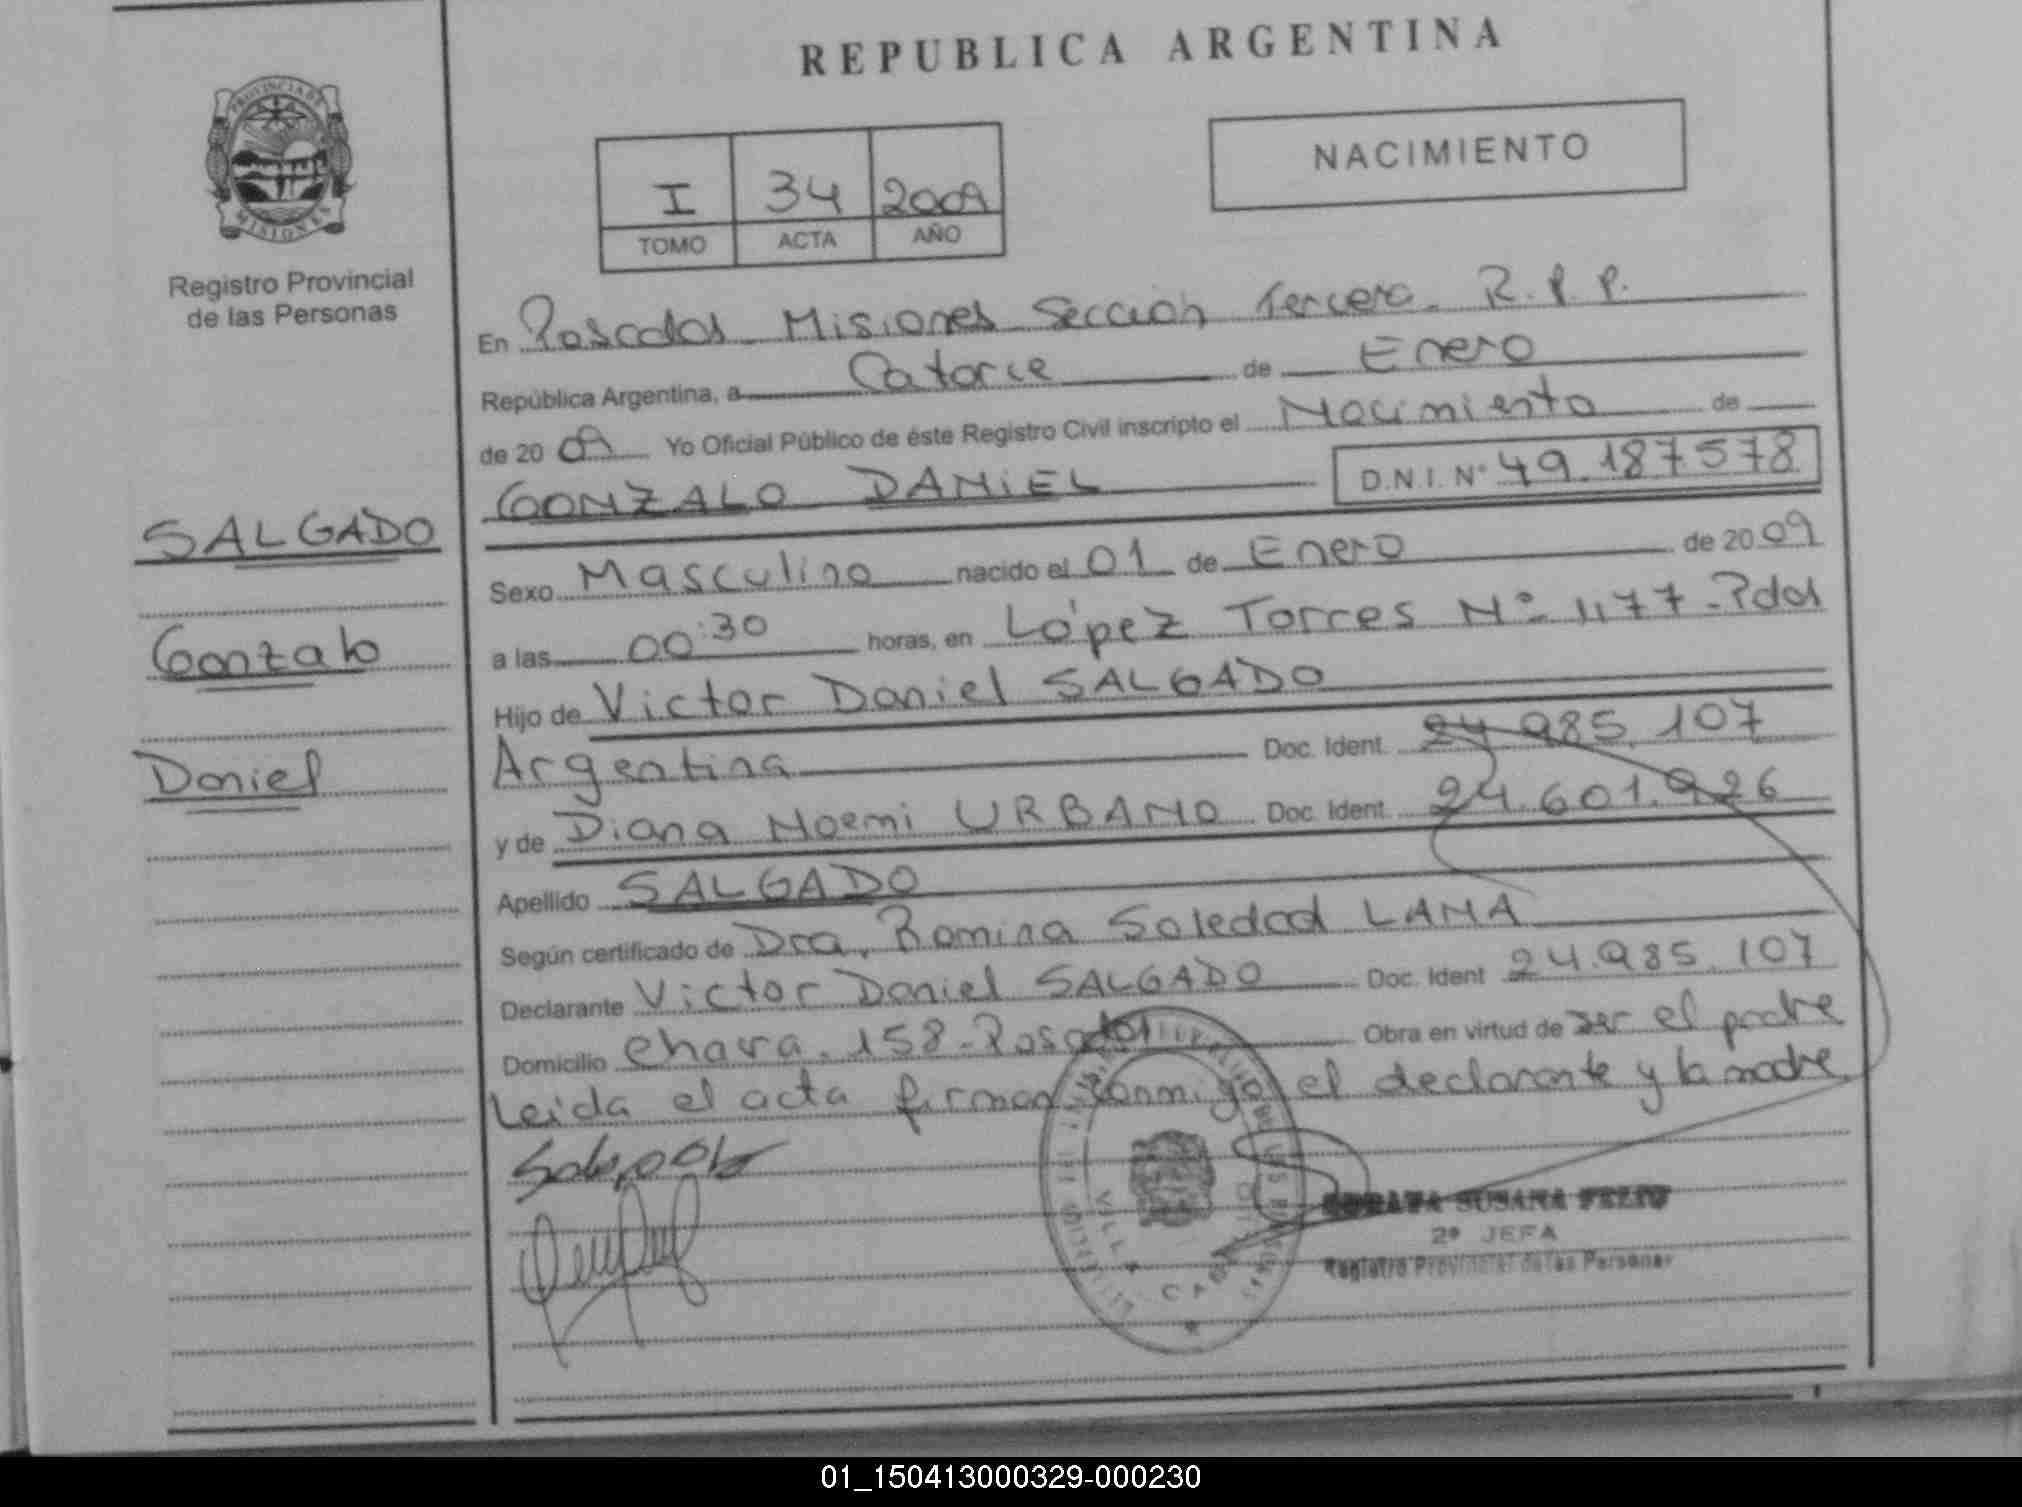 REPUBLICA ARGENTINA
PROVINCIA DE
MISIONES
Registro Provincial
de las Personas
I 34 2009
TOMO ACTA AÑO
NACIMIENTO
En Posadas Misiones Sección Tercera. R.P.P.
República Argentina, a Catorce de Enero
de 2009 Yo Oficial Público de éste Registro Civil inscripto el Nacimiento de
GONZALO DANIEL D.N.I. Nº 49.187578
SALGADO
Gonzalo
Daniel
Sexo Masculino nacido el 01 de Enero de 2009
a las 00:30 horas, en López Torres Nº 1177-Pdas
Hijo de Victor Daniel SALGADO
Argentina Doc. Ident. 24.985.107
y de Diana Noemi URBANO Doc. Ident. 24.601.926
Apellido SALGADO
Según certificado de Dra. Romina Soledad LAMA
Declarante Victor Daniel SALGADO Doc. Ident 24.985.107
Domicilio Chara. 158-Posadas Obra en virtud de ser el padre
Leida el acta firman conmigo el declarante y la madre
VILLA CAB
SUSANA
2º JEFA
Registro Provincial de las Personas
01_150413000329-000230